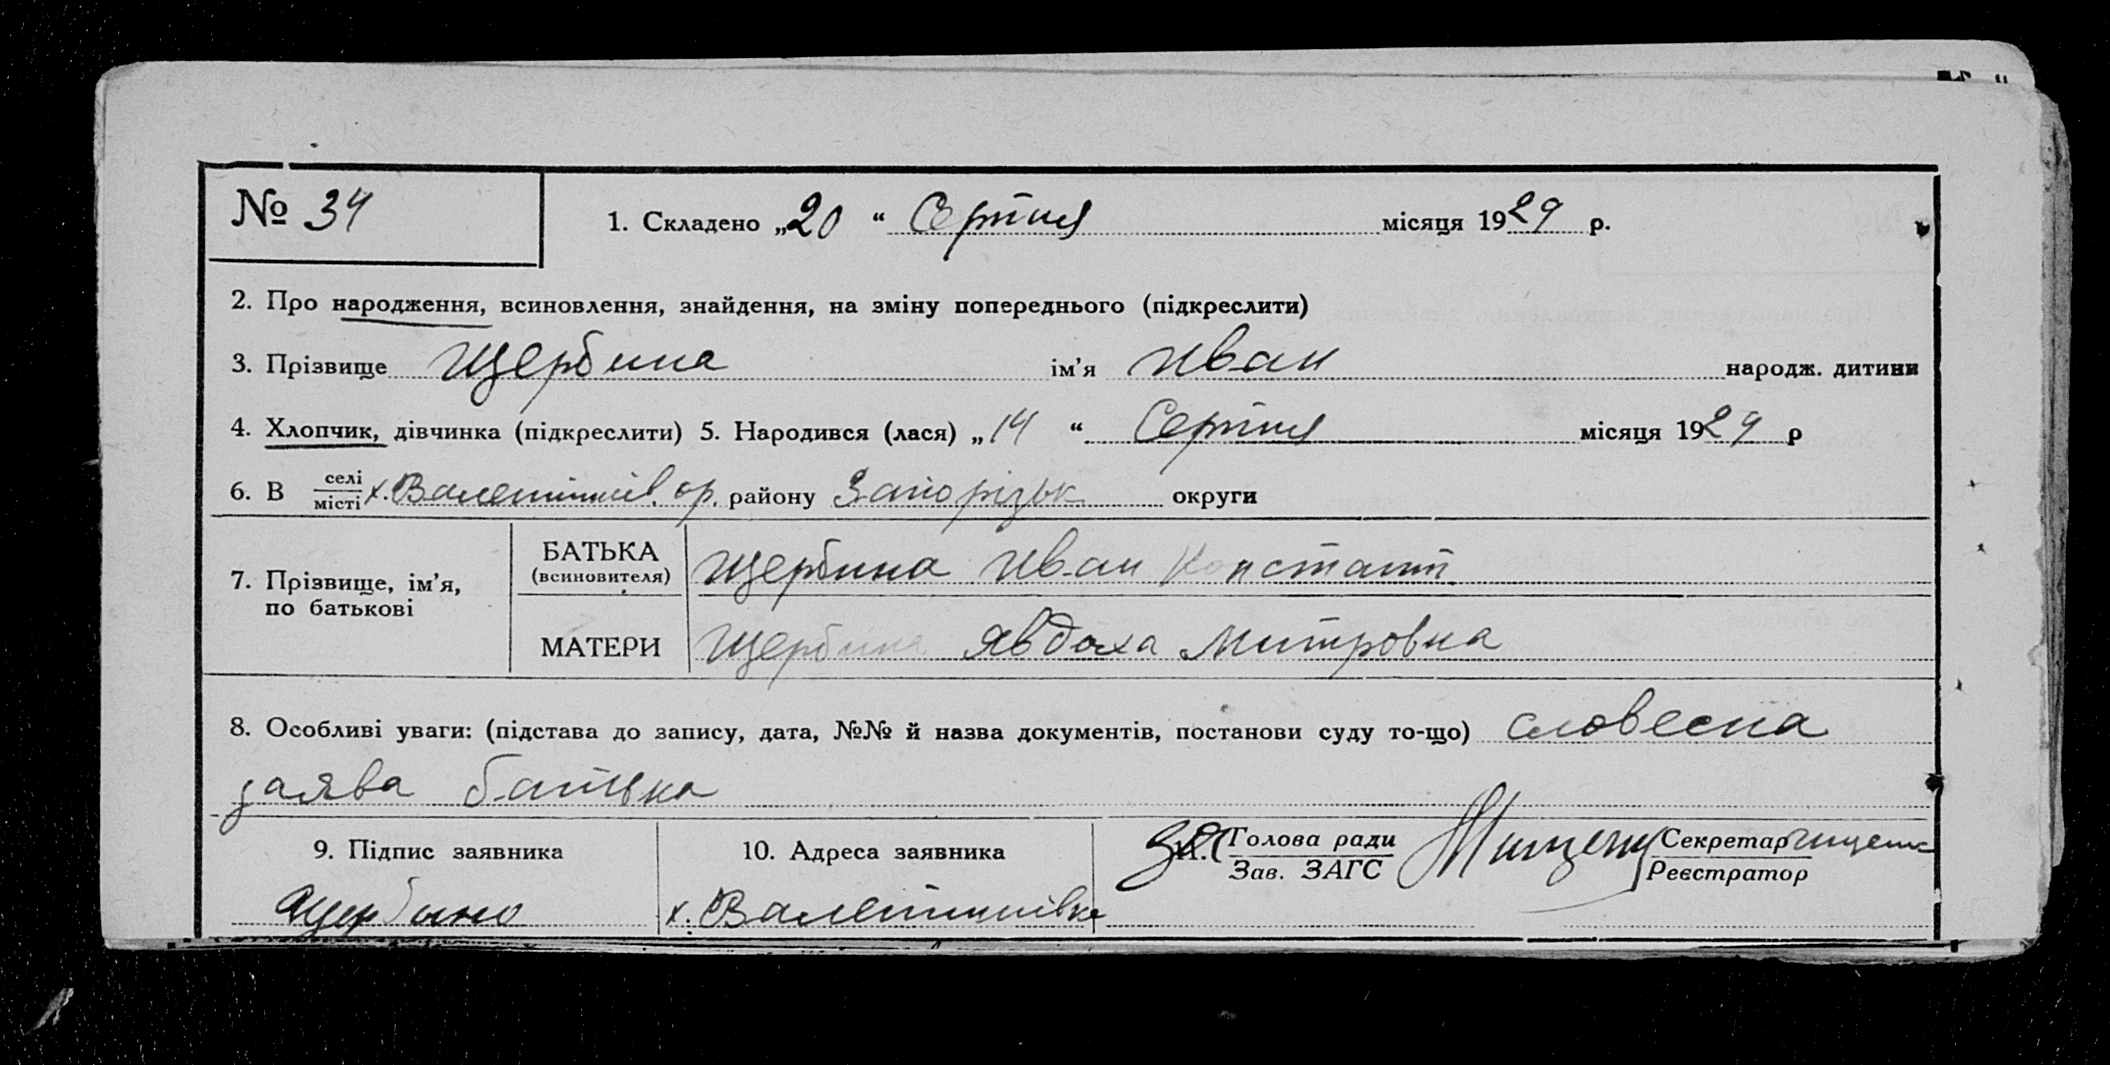 № 34
1. Складено „20“ Серпня місяця 1929 р.
2. Про народження, всиновлення, знайдення, на зміну попереднього (підкреслити)
3. Прізвище Щербина ім'я Иван народж. дитини
4. Хлопчик, дівчинка (підкреслити) 5. Народився (лася) „14“ Серпня місяця 1929 р
6. В селі місті х. ор. району Запорізьк округи
7. Прізвище, ім'я, по батькові
БАТЬКА (всиновителя) Щербина Иван Констант
МАТЕРИ Щербина Явдоха Митровна
8. Особливі уваги: (підстава до запису, дата, №№ й назва документів, постанови суду то-що) словесна
заява батька
9. Підпис заявника
Щербина
10. Адреса заявника
х.
Голова ради
Зав. ЗАГС
Секретар
Реєстратор